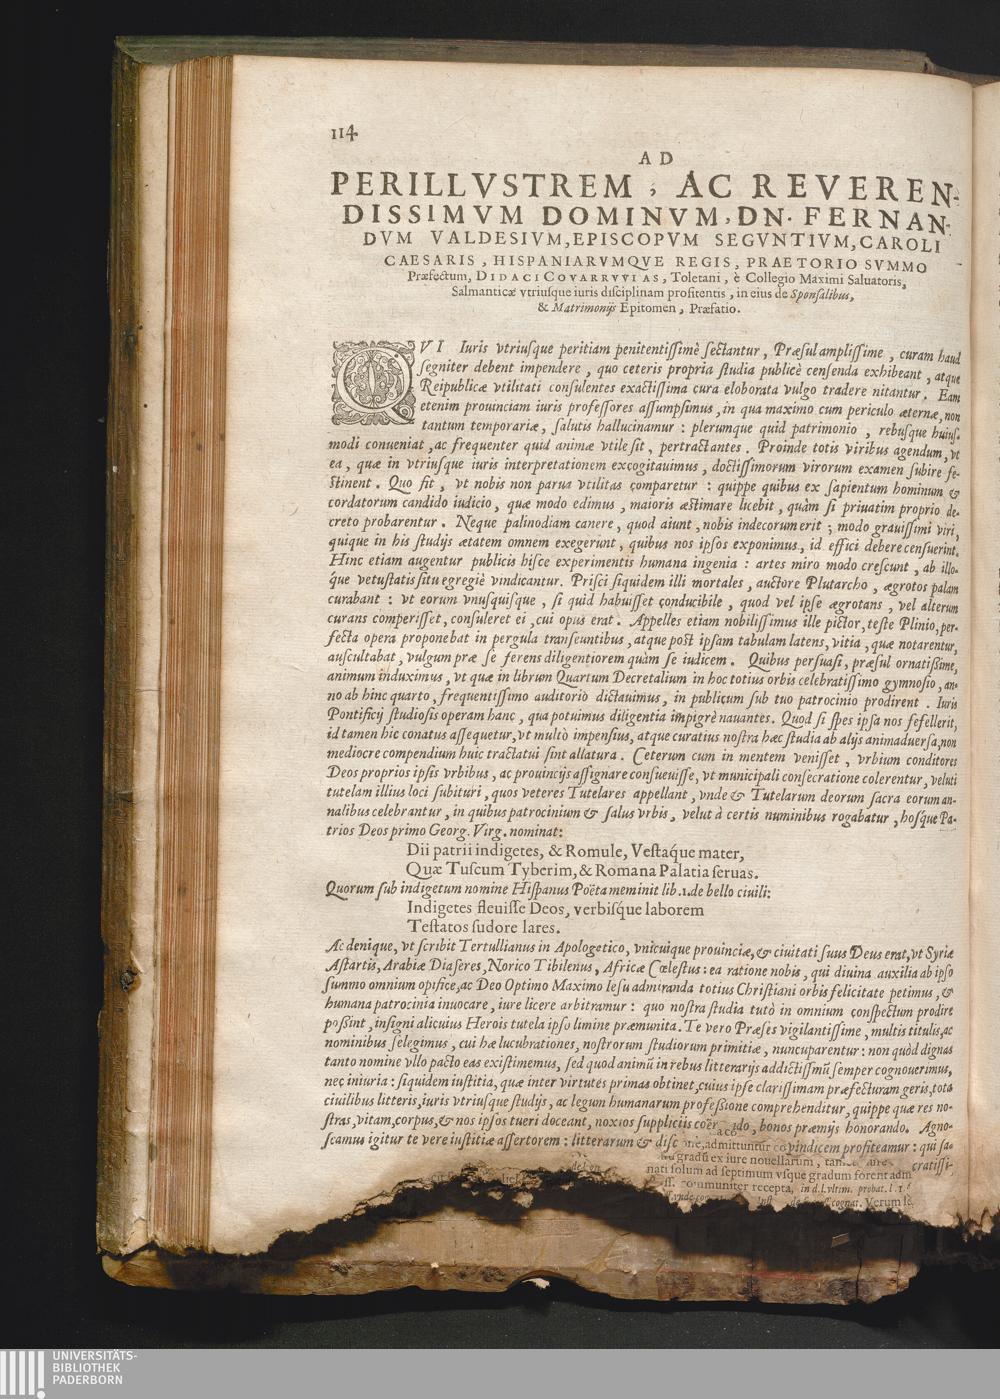 114
AD
PERILLVSTREM, AC REVEREN-
DISSIMVM DOMINVM, DN. FERNAN-
DVM VALDESIVM, EPISCOPVM SEGVNTIVM, CAROLI
CAESARIS, HISPANIARVMQVE REGIS, PRAETORIO SVMMO
Præfectum, DIDACI COVARRVVIAS, Toletani, è Collegio Maximi Saluatoris,
Salmanticæ vtriuſque iuris diſciplinam profitentis, in eius de Sponſalibus,
& Matrimonijs Epitomen, Præfatio.
QVI Iuris vtriuſque peritiam penitentiſſimè ſectantur, Præſul ampliſſime, curam haud
ſegniter debent impendere, quo ceteris propria ſtudia publicè cenſenda exhibeant, atque
Reipublicæ vtilitati conſulentes exactiſſima cura eloborata vulgo tradere nitantur. Eam
etenim prouinciam iuris profeſſores aſſumpſimus, in qua maximo cum periculo æternæ, non
tantum temporariæ, ſalutis hallucinamur: plerumque quid patrimonio, rebuſque huiuſ-
modi conueniat, ac frequenter quid animæ vtile ſit, pertractantes. Proinde totis viribus agendum, vt
ea, quæ in vtriuſque iuris interpretationem excogitauimus, doctiſſimorum virorum examen ſubire fe-
ſtinent. Quo fit, vt nobis non parua vtilitas comparetur: quippe quibus ex ſapientum hominum &
cordatorum candido iudicio, quæ modo edimus, maioris æſtimare licebit, quàm ſi priuatim proprio de-
creto probarentur. Neque palinodiam canere, quod aiunt, nobis indecorum erit; modo grauiſſimi viri,
quique in his ſtudijs ætatem omnem exegerunt, quibus nos ipſos exponimus, id effici debere cenſuerint.
Hinc etiam augentur publicis hiſce experimentis humana ingenia: artes miro modo creſcunt, ab illo-
q́ue vetuſtatis ſitu egregiè vindicantur. Priſci ſiquidem illi mortales, auctore Plutarcho, ægrotos palam
curabant: vt eorum vnuſquiſque, ſi quid habuiſſet conducibile, quod vel ipſe ægrotans, vel alterum
curans comperiſſet, conſuleret ei, cui opus erat. Appelles etiam nobiliſſimus ille pictor, teſte Plinio, per-
fecta opera proponebat in pergula tranſeuntibus, atque poſt ipſam tabulam latens, vitia, quæ notarentur,
auſcultabat, vulgum præ ſe ferens diligentiorem quàm ſe iudicem. Quibus perſuaſi, præſul ornatiſſime,
animum induximus, vt quæ in librum Quartum Decretalium in hoc totius orbis celebratiſſimo gymnoſio, an-
no ab hinc quarto, frequentiſſimo auditorio dictauimus, in publicum ſub tuo patrocinio prodirent. Iuris
Pontificij ſtudioſis operam hanc, qua potuimus diligentia impigrè nauantes. Quod ſi ſpes ipſa nos fefellerit,
id tamen hic conatus aſſequetur, vt multò impenſius, atque curatius noſtra hæc ſtudia ab alijs animaduerſa, non
mediocre compendium huic tractatui ſint allatura. Ceterum cum in mentem veniſſet, vrbium conditores
Deos proprios ipſis vrbibus, ac prouincijs aſſignare conſueuiſſe, vt municipali conſecratione colerentur, veluti
tutelam illius loci ſubituri, quos veteres Tutelares appellant, vnde & Tutelarum deorum ſacra eorum an-
nalibus celebrantur, in quibus patrocinium & ſalus vrbis, velut à certis numinibus rogabatur, hoſque Pa-
trios Deos primo Georg. Virg. nominat:
Dii patrii indigetes, & Romule, Veſtaq́ue mater,
Quæ Tuſcum Tyberim, & Romana Palatia ſeruas.
Quorum ſub indigetum nomine Hiſpanus Poëta meminit lib. 1. de bello ciuili:
Indigetes fleuiſſe Deos, verbiſq́ue laborem
Teſtatos ſudore lares.
Ac denique, vt ſcribit Tertullianus in Apologetico, vnicuique prouinciæ, & ciuitati ſuus Deus erat, vt Syriæ
Aſtartis, Arabiæ Diaſeres, Norico Tibilenus, Africæ Cœleſtus: ea ratione nobis, qui diuina auxilia ab ipſo
ſummo omnium opifice, ac Deo Optimo Maximo Ieſu admiranda totius Chriſtiani orbis felicitate petimus, &
humana patrocinia inuocare, iure licere arbitramur: quo noſtra ſtudia tutò in omnium conſpectum prodire
poſſint, inſigni alicuius Herois tutela ipſo limine præmunita. Te vero Præſes vigilantiſſime, multis titulis, ac
nominibus ſelegimus, cui hæ lucubrationes, noſtrorum ſtudiorum primitiæ, nuncuparentur: non quòd dignas
tanto nomine vllo pacto eas exiſtimemus, ſed quod animũ in rebus litterarijs addictiſſmũ ſemper cognouerimus,
nec iniuria: ſiquidem iuſtitia, quæ inter virtutes primas obtinet, cuius ipſe clariſſimam præfecturam geris, tota
ciuilibus litteris, iuris vtriuſque ſtudijs, ac legum humanarum profeſſione comprehenditur, quippe quæ res no-
ſtras, vitam, corpus, & nos ipſos tueri doceant, noxios ſuppliciis coër do, bonos præmijs honorando. Agno-
ſcamus igitur te vere iuſtitiæ aſſertorem: litterarum & diſc ne, admittuntur vindicem profiteamur: qui ſa-
gradũ ex iure nouellarum, cratiſſi-
nati ſolum ad ſeptimum vſque gradum forent adm
communiter recepta, in d. l. vltim. probat. l. 1.
cognat. Verum ſe
UNIVERSITÄTS-
BIBLIOTHEK
PADERBORN